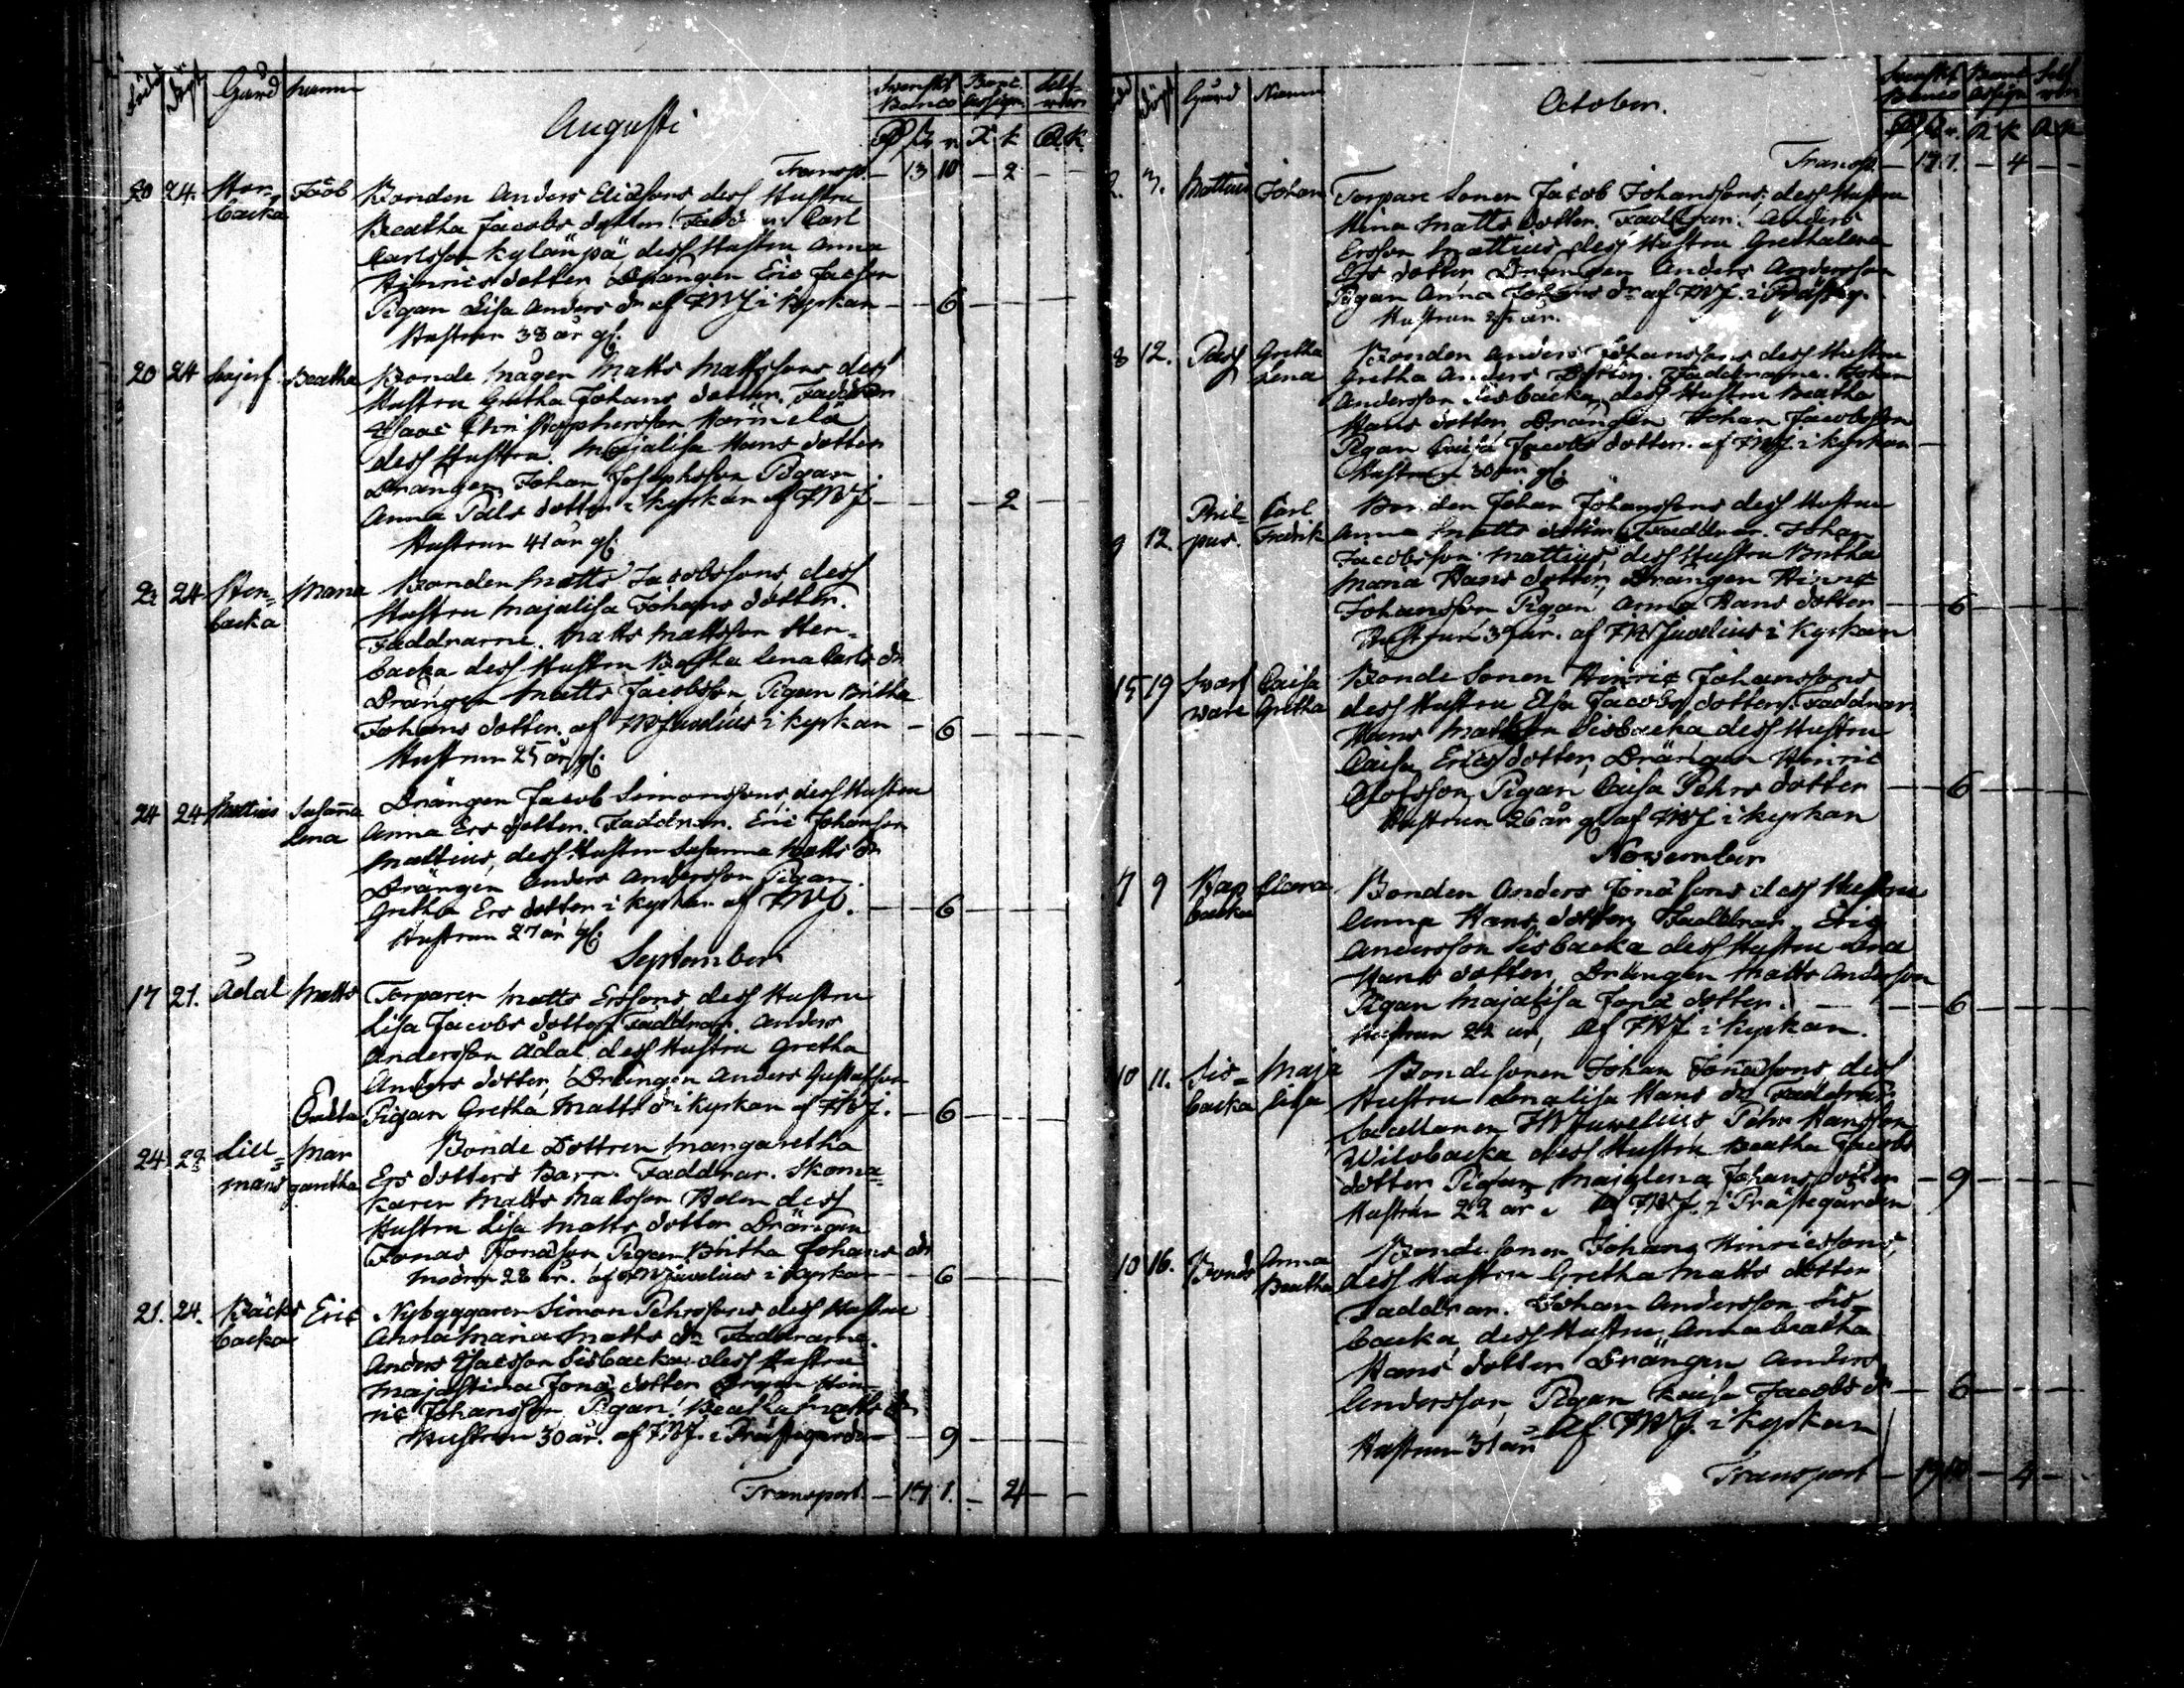 Född Döpt Gård Namn Svenskt Banco Banc. Assign. Silf- wer
Augusti
Transp. 13 10 2
20 24. Stor- Jacob Bonden Anders Eliassons dess Hustru
backa Beatha Jacobs dotter. Carl
Carlsson Kylänpä, dess Hustru Anna
Hinrics dotter Drängen Eric
Pigan Lisa Anders dr af FWJ i Kyrkan 6
Hustrun 38 år gl.
20 24 Beatha Bonde Mågen Matts Mattssons dess
Hustru Gretha Johans dotter. Faddrar
Isaac Christophersson
dess Hustru Majalisa Hans dotter
Drängen Johan Josephsson Pigan
Anna Pals dotter i kyrkan af FWJ 2
Hustrun 41 år gl.
24 Sten- Maria Bonden Matts Jacobssons dess
backa Hustru Majalisa Johans dotter.
Faddrarne. Matts Mattsson Sten-
backa dess Hustru Lena Carls dr
Drängen Matts Jacobsson, Pigan Britha
Johans dotter. af FWJuvelius i kyrkan 6
Hustrun 25 år gl.
24 24 Mattius Susanna Drängen Jacob Simonssons, dess Hustru
Lena Anna Ers dotter. Faddrar. Eric Johansson
Mattius, dess Hustru Susanna Matts dr
Drängen Anders Andersson Pigan
Gretha Ers dotter i kyrkan af FWJ. 6
Hustrun 27 år gl.
September
17 21. Ådal Matts Torparen Matts Erssons dess Hustru
Lisa Jacobs dotter Faddrar. Anders
Andersson Ådal dess Hustru Gretha
Anders dotter, Drängen Anders Gustafsson
Pigan Gretha Matts dr i kyrkan af FWJ. 6
24 Lill- Mar Bonde Dottren Margaretha
mans garetha Ers dotters Barn. Faddrar. Skoma-
karen Matts Mattsson Holm dess
Hustru Lisa Matts dotter Drängen
Jonas Jonasson Pigan Britha Johans dr
Modren 28 år. af FWJuvelius i Kyrkan 6
21. 24. Bäcks Eric Nybyggaren Simon Pehrssons dess Hustru
backa Anna Maria Matts dr Faddrarne.
Anders Isacsson Sisbacka dess Hustru
Majastina Jona dotter Drgen Hin-
ric Johansson Pigan Beatha Matts dr
Hustrun 30 år. af FWJ. i Prästegården 9
Transport. 17 1. 4
Döpt Gård Namn Svenskt Banco Banc Assign Silf wer
October.
Transp. 17 1. 4
2. 3. Mattius Johan Torpare Sonen Jacob Johanssons dess Hustru
Stina Matts dotter. Faddrar. Anders
Ersson Mattius dess Hustru Grethalena
Ers dotter Drängen Anders Andersson
Pigan Anna Johans dr af FWJ i Prästeg.
Hustrun år.
8 12. Pass Gretha Bonden Anders Johanssons dess Hustru
Lena Gretha Anders Dotter. Faddrarne. Johan
Andersson Sisbacka, dess Hustru Beatha
Hans dotter, Drängen Johan Jacobsson
Pigan Caisa Jacobs dotter. af FWJ. i kyrkan
Hustrun 30 år gl.
9 12. Phil- Carl Bonden Johan Johanssons dess Hustru
pus. Fredrik Anna Matts dotter. Faddrar. Johan
Jacobsson Mattius, dess Hustru Britha
Maria Hans dotter, Drängen Hinric
Johansson Pigan Anna Hans dotter 6
Hustrun 39 år. af FWJuvelius i Kyrkan
15 19 Svart Caisa Bonde Sonen Hinric Johanssons
ware Gretha dess Hustru Elsa Jacobs dotter. Faddrar.
Hans Mattsson Sisbacka dess Hustru
Caisa Erics dotter, Drängen Hinric
Olofsson, Pigan Caisa Pehrs dotter 6
Hustrun 26 år gl af FWJ i kyrkan
November
7 9 Kap Clara Bonden Anders Jonassons dess Hustru
backa Anna Hans dotter Faddrar. Eric
Andersson Sisbacka dess Hustru Lena
Hans dotter, Drängen Matts Andersson
Pigan Majalisa Jona dotter. 6
Hustrun 22 år, Af FWJ i kyrkan.
10 11. Sis- Maja Bondesonen Johan Jonassons dess
backa Lisa Hustru Annalisa Hans dr Faddrar.
Sacellanen FWJuvelius Pehr Hansson
Wilobacka dess Hustru Beatha Jacobs
dotter Pigan Majalena Johans dotter 9
Hustrun 22 år. af FWJ. i Prästegården
10 16. Bonds Anna Bonde sonen Johans Hinricssons,
Beatha dess Hustru Gretha Matts dotter
Faddrar. Johan Andersson Sis-
backa, dess Hustru, Annabeatha
Hans dotter Drängen Anders
Andersson, Pigan Kaisa Jacobs dr 6
Hustrun 31 år Af FWJ. i kyrkan
Transport 19 10 4